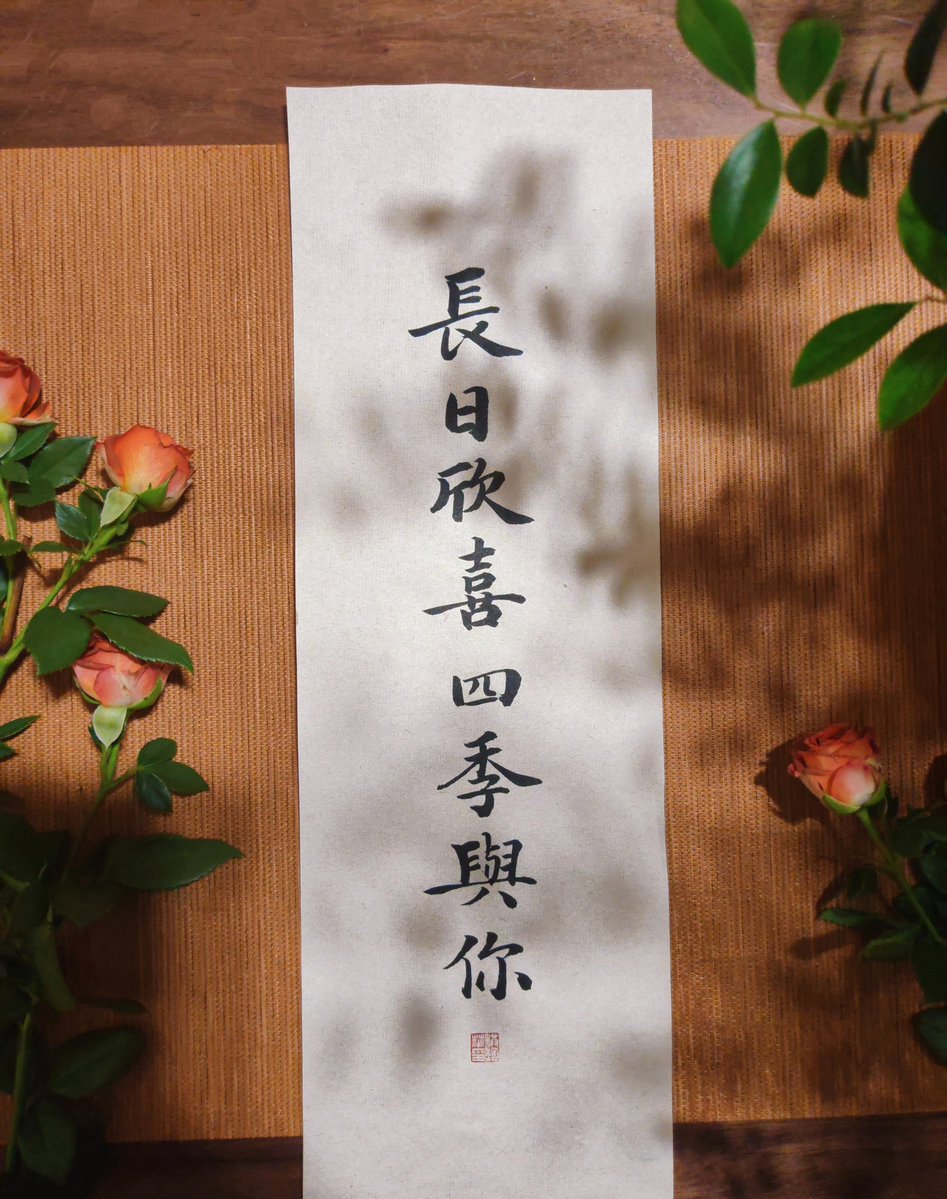 長日欣喜 四季與你